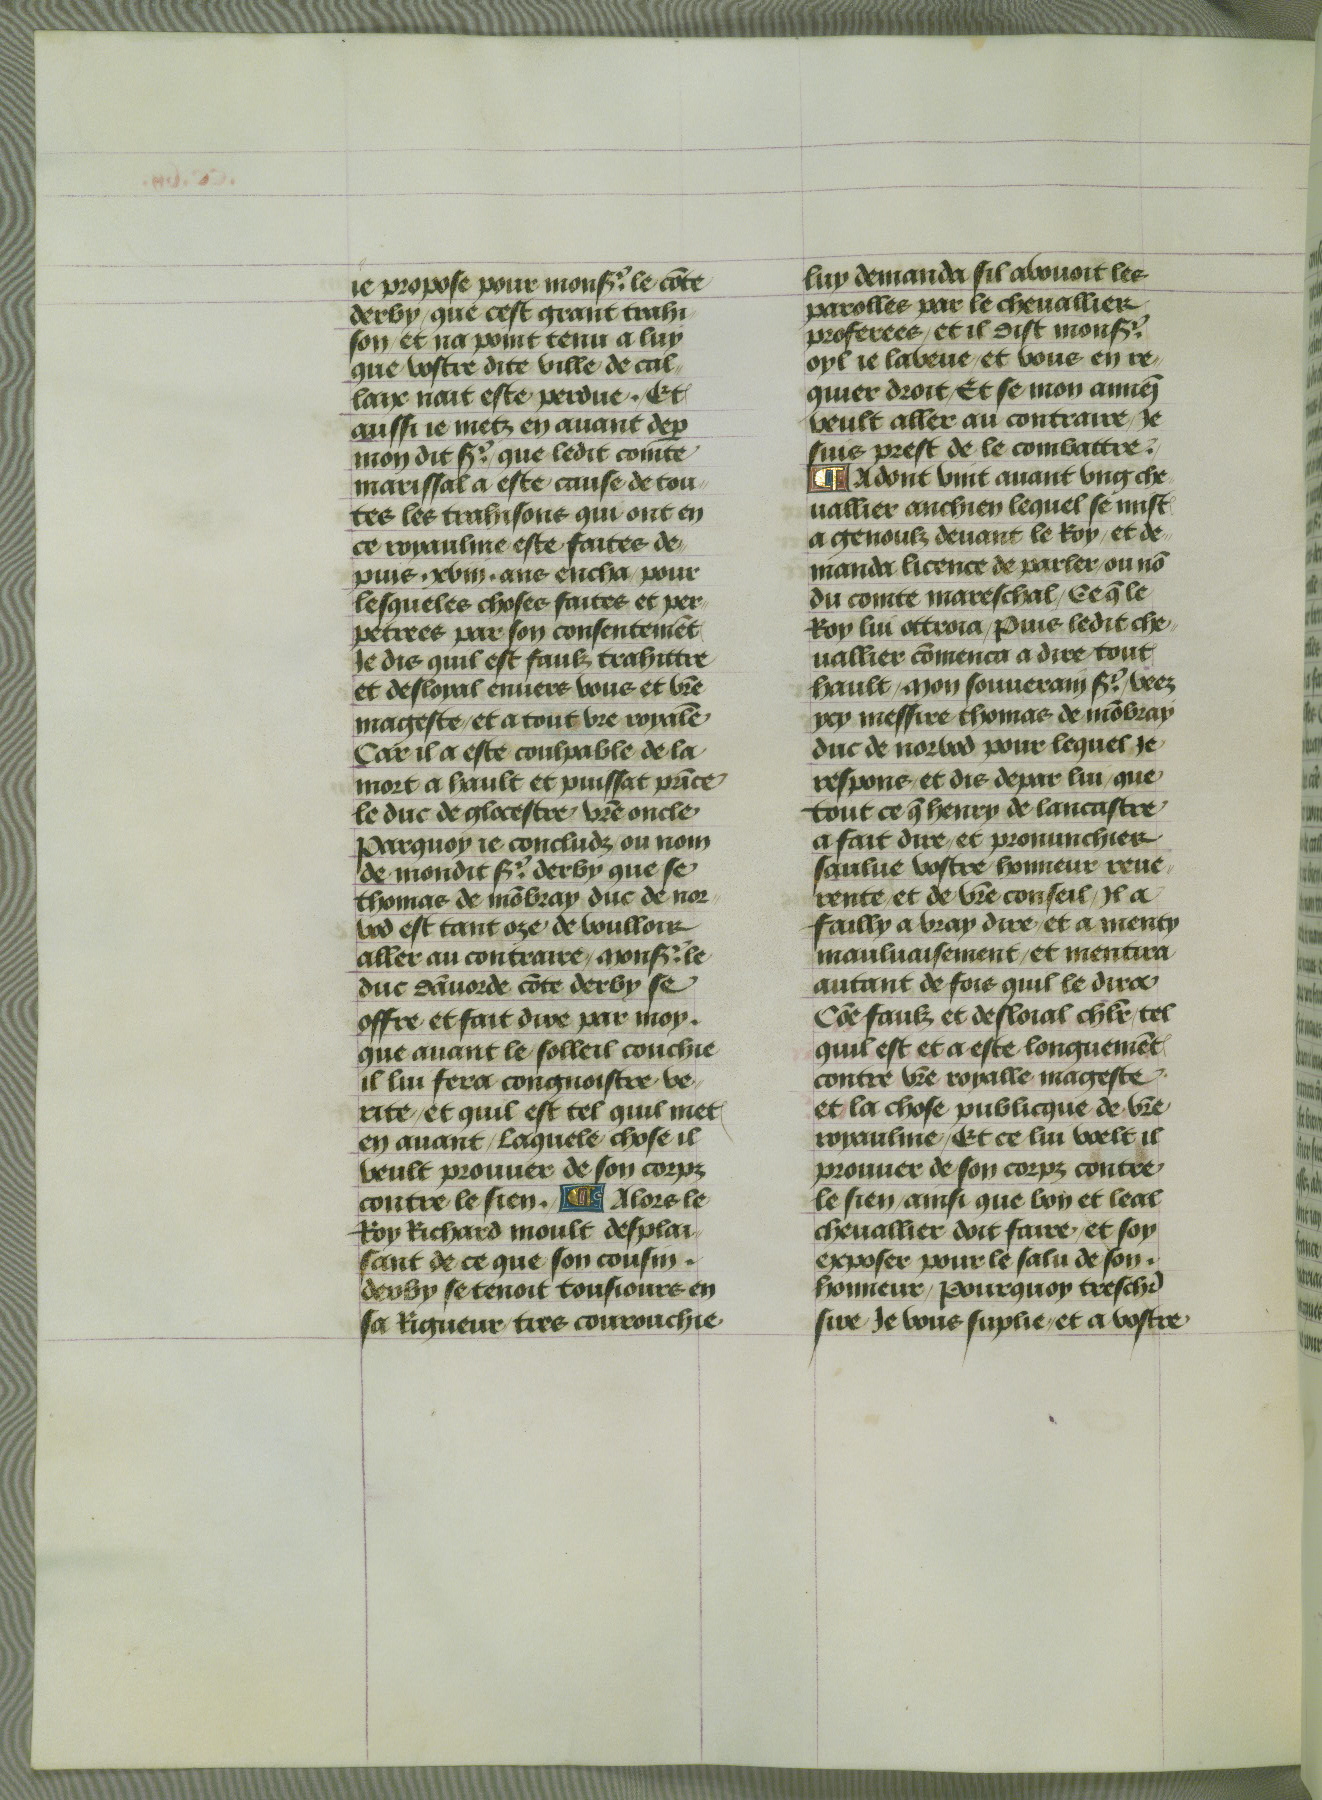 ie propose pour mons̄r le cōte
derby / que cest grant trahi
son / et na point tenu a luy
que vostre dite ville de cal
laix nait este perdue . Et
aussi ie metz en auant dep
mon dit s̄r / que ledit comte
marissal a este cause de tou
tes les trahisons qui ont en
ce royaulme este faites de
puis . xviii . ans encha / pour
lesqueles choses faites et per
petrees par son consentemēt
Je dis quil est faulz trahittre
et desloyal enuers vous et vr̄e
mageste / et a tout vre royalē
Car il a este coulpable de la
mort a hault et puissāt prīce
le duc de glocestre / vr̄e oncle
Parquoy ie concludz ou nom
de mondit s̄r derby que se
thomas de mōbray duc de nor
vod est tant oze de voulloir
aller au contraire / mons̄r le
duc dāuorde cōte derby se
offre et fait dire par moy .
que auant le solleil couchie
il lui fera congnoistre ve
rite / et quil est tel quil met
en auant / Laquele chose il
veult prouuer de son corpz
contre le sien . ¶ Alors le
Roy Richard moult desplai
sant de ce que son cousin .
derby se tenoit tousiours en
sa Rigueur / tres courouchie
luy demanda sil abouoit les
parolles par le cheuallier
proferees / et il dist mons̄r
oyl ie laveue / et vous en re
quier droit / Et se mon
veult aller au contraire / Je
suis prest de le combattre .
¶ Adont vint auant vng che
uallier anchien lequel se mist
a genoulz deuant le Roy / et de
manda licence de parler / ou nō
du comte mareschal / Ce q̄ le
Roy lui ottroia / Puis ledit che
uallier cōmenca a dire tout
hault / Mon souuerain s̄r / veez
ycy messire thomas de mōbray
duc de norvod pour lequel Je
respons / et dis depar lui / que
tout ce q̄ henry de lancastre
a fait dire / et pronunchier
saulue vostre honneur reue
rente / et de vr̄e conseil / Il a
failly a vray dire / et a menty
mauluaisement / et mentira
autant de fois quil le dira
Cōe faulz et desloial chl̄r / tel
quil est et a este longuemēt
contre vr̄e royalle mageste
et la chose publicque de vr̄e
royaulme / Et ce lui voelt il
prouuer de son corpz contre
le sien / ainsi que bon et leal
cheuallier doit faire / et soy
exposer pour le salu de son .
honneur / Pourquoy treschr̄
sire Je vous suplie / et a vostre